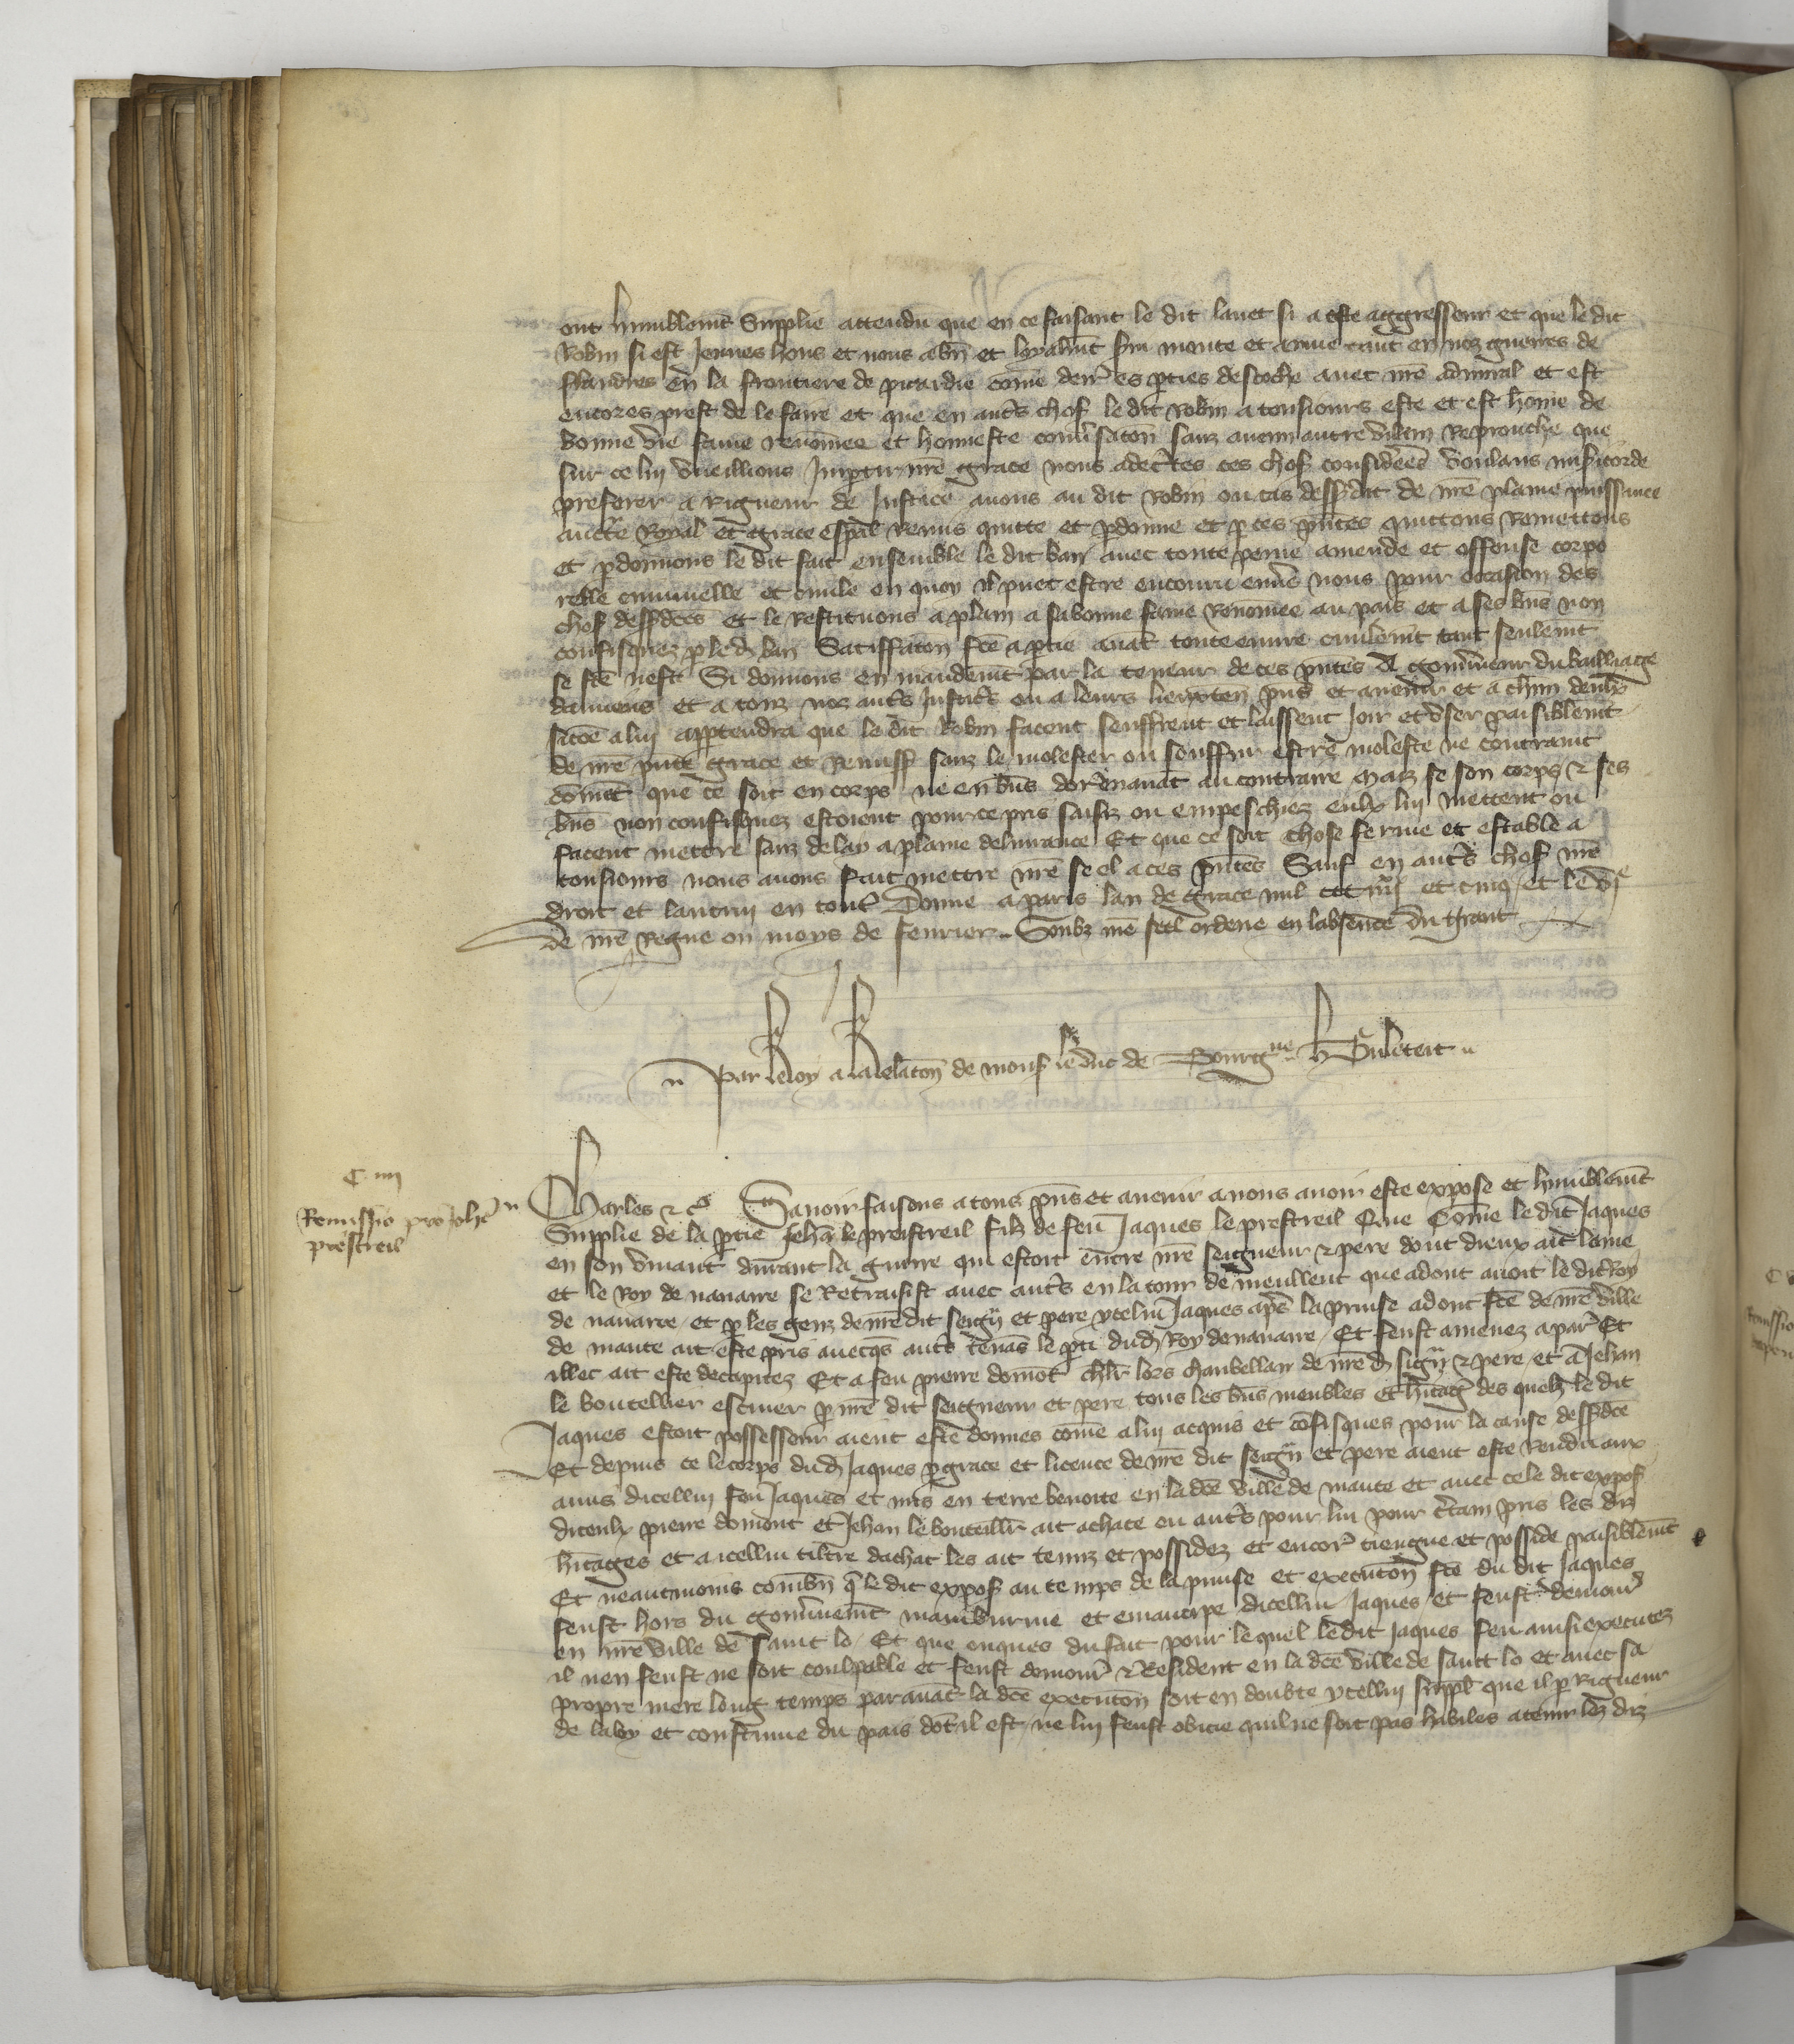 ont humblemt supplie attendu que en ce faisant le dit lauet si a este aggresseur et que le dit
Robin si est Jennes homs et nous a bn et loyalmt serui monte et arme tant en noz guerres de
flandres en la frontiere de picardie come derr es pties descoche auec nre admiral et est
encores prest de le faire et que en autrs chos le dit Robin a tousiours este et est home de
bonne vie fame renommee et honneste conusaton sanz aucun autre vilain Reprouche que
sur ce lui vueillions Impartir nre grace nous adecertes ces chos considerees voulans misicorde
preferer a Rigueur de Justice auons au dit Robin ou cas dessusdit de nre plaine puissance
aucte Royal et grace espal Remis quitte et pdonne et p ces pntes quittons Remettons
et pdonnons le dit fait ensemble le dit ban auec toute peine amende et offense corpo
relle criminelle et ciuile en quoy il puet estre encouru enuers nous pour occasion des
chos dessusdces et le Restituons a plain a sa bonne fame Renomee au pais et a ses bns non
confisquez p le d ban Satiffaton fce a ptie auat toute euure ciuilemt tant seulemt
se fce nest Si donnons en mandemt par la teneur de ces pntes A gouuneur du bailliage
damiens et a touz noz autrs Justics ou a leurs lieuxten pns et auenir et a chun deulx
sicoe a lui appartendra que le dit Robin facent seuffrent et laissent Joir et vser paisiblemt
de nre pnte grace et Remiss sanz le molester ou souffrir estre moleste ne contraint
comet que ce soit en corps ne en bns doresnauat au contraire maiz se son corps & ses
bns non confisquez estoient pource pris saisiz ou empeschiez eulx lui mettent ou
facent mettre sanz delay a plaine deliurance Et que ce soit chose ferme et estable a
tousiours nous auons fait mettre nre seel a ces pntes Sauf en autrs chos nre
droit et lautrui en tout Donne a paris lan de grace mil ccc iiiixx et cinq et le vje
de nre Regne ou moys de feurier Soubz nre seel ordene en labsence du grant
Par le Roy a la Relaton de mons le duc de Bourgne
C iiii
Remissio pro Johe prestreil
Charles &c Sauoir faisons a tous pns et auenir a nous auoir este expose et humblemt
Supplie de la ptie Jehan le prestreil filz de feu Jaques le prestreil Que Come le dit Jaques
en son viuant durant la guerre qui estoit entre nre seigneur & pere dont dieux ait lame
et le Roy de nauarre se Retraisist auec autrs en la tour de meullent que adont auoit le dit Roy
de nauarre et p les genz de nre dit seigr et pere ycelui Jaques apres la prinse adont fce de nre ville
de mante ait este pris auecqs autrs tenas le pti dud Roy de nauarre Et feust amenez a par Et
illec ait este decapitez Et a feu pierre domot chlr lors chanbellan de nre d sigr & pere et a Jehan
le boutellier escuier p nre dit seigneur et pere tous les bns meubles et hitages des quelz le dit
Jaques estoit possesseur aient este donnes come a lui acquis et cofisques pour la cause dessusdce
Et depuis ce le corps dud Jaques p grace et licence de nre dit seigr et pere aient este Rendu aux
amis dicellui feu Jaques et mis en terre benoite en la dce ville de mante et auec ce le dit expos
diceulx pierre domont et Jehan le bouteillr ait achate ou autrs pour lui pour crtain pris les diz
hitages et a icellui tiltre dachat les ait tenuz et possidez et encor tiengne et posside paisiblemt
Et neantmoins combn q le dit expos au temps de la prinse et execution fce du dit Jaques
feust hors du gouunemt mainburnie et emancipe dicellui Jaques et feust demour
en nre ville de saint lo Et que onques du fait pour lequel le dit Jaques feu ainsi executez
il nen feust ne soit coulpable et feust demour & Resident en la dce ville de saint lo et auec sa
propre mere long temps parauat la dce execution soit en doubte ycellui suppl que il p Rigueur
de la loy et constume du pais dot il est ne lui feust obicie quil ne soit pas habiles a tenir lez diz